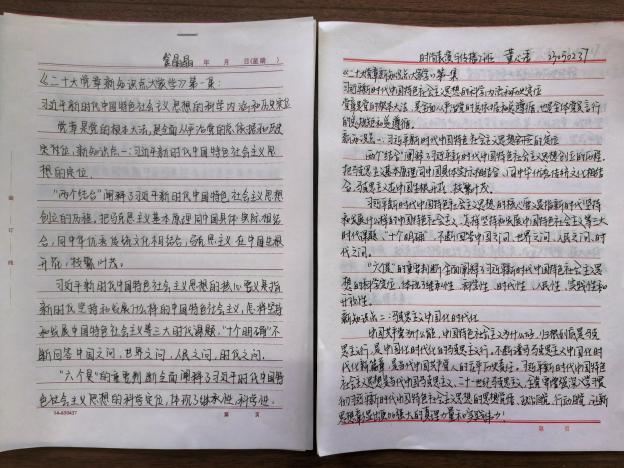 年 月 日(星期 )
《二十大党章新知识点大家学》第一集:
习近平新时代中国特色社会主义思想的科学内涵和历史定位
党章是党的根本大法,是全面从严治党的总依据和
新知识点一:习近平新时代中国特色社会主义思
想的定位
“两个结合”阐释了习近平新时代中国特色社会主义思想
创立的历程。把马克思主义基本原理同中国具体实际相结
合,同中华优秀传统文化相结合,马克思主义在中国生根
开花,枝繁叶茂。
习近平新时代中国特色社会主义思想的核心要义是指
新时代坚持和发展什么样的中国特色社会主义,怎样坚持
和发展中国特色社会主义等三大时代课题,“十个明确”不
断回答中国之问,世界之问,人民之问,时代之问。
“六个是”的重要判断全面阐释了习近平新时代中国特
色社会主义思想的科学定位,体现了继承性,科学性
14-030437
第 页
《二十大党章新知识点大家学》第一集
习近平新时代中国特色社会主义思想的科学内涵和历史定位
党章是党的根本大法,是全面从严治党的总依据和总遵循,也是全体党员言行
新知识点一:习近平新时代中国特色社会主义思想的定位
“两个结合”阐释了习近平新时代中国特色社会主义思想创立的历程。
把马克思主义基本原理同中国具体实际相结合,同中华优秀传统文化相结
合,马克思主义在中国生根开花,枝繁叶茂。
习近平新时代中国特色社会主义思想的核心要义是指新时代坚持
和发展什么样的中国特色社会主义,怎样坚持和发展中国特色社会主义等三大
时代课题,“十个明确”不断回答中国之问,世界之问,人民之问,时
代之问。
“六个是”的重要判断全面阐释了习近平新时代中国特色社会主义思
想的科学定位,体现了继承性,科学性,时代性,人民性,实践性和
开放性。
新知识点二:马克思主义中国化时代化
中国共产党为什么能,中国特色社会主义为什么好,归根到底是马克
思主义行,是中国化时代化的马克思主义行。不断谱写马克思主义中国化时
代化新篇章,是当代中国共产党人的庄严历史责任。习近平新时代中国特色
社会主义思想是当代中国马克思主义,二十一世纪马克思主义,